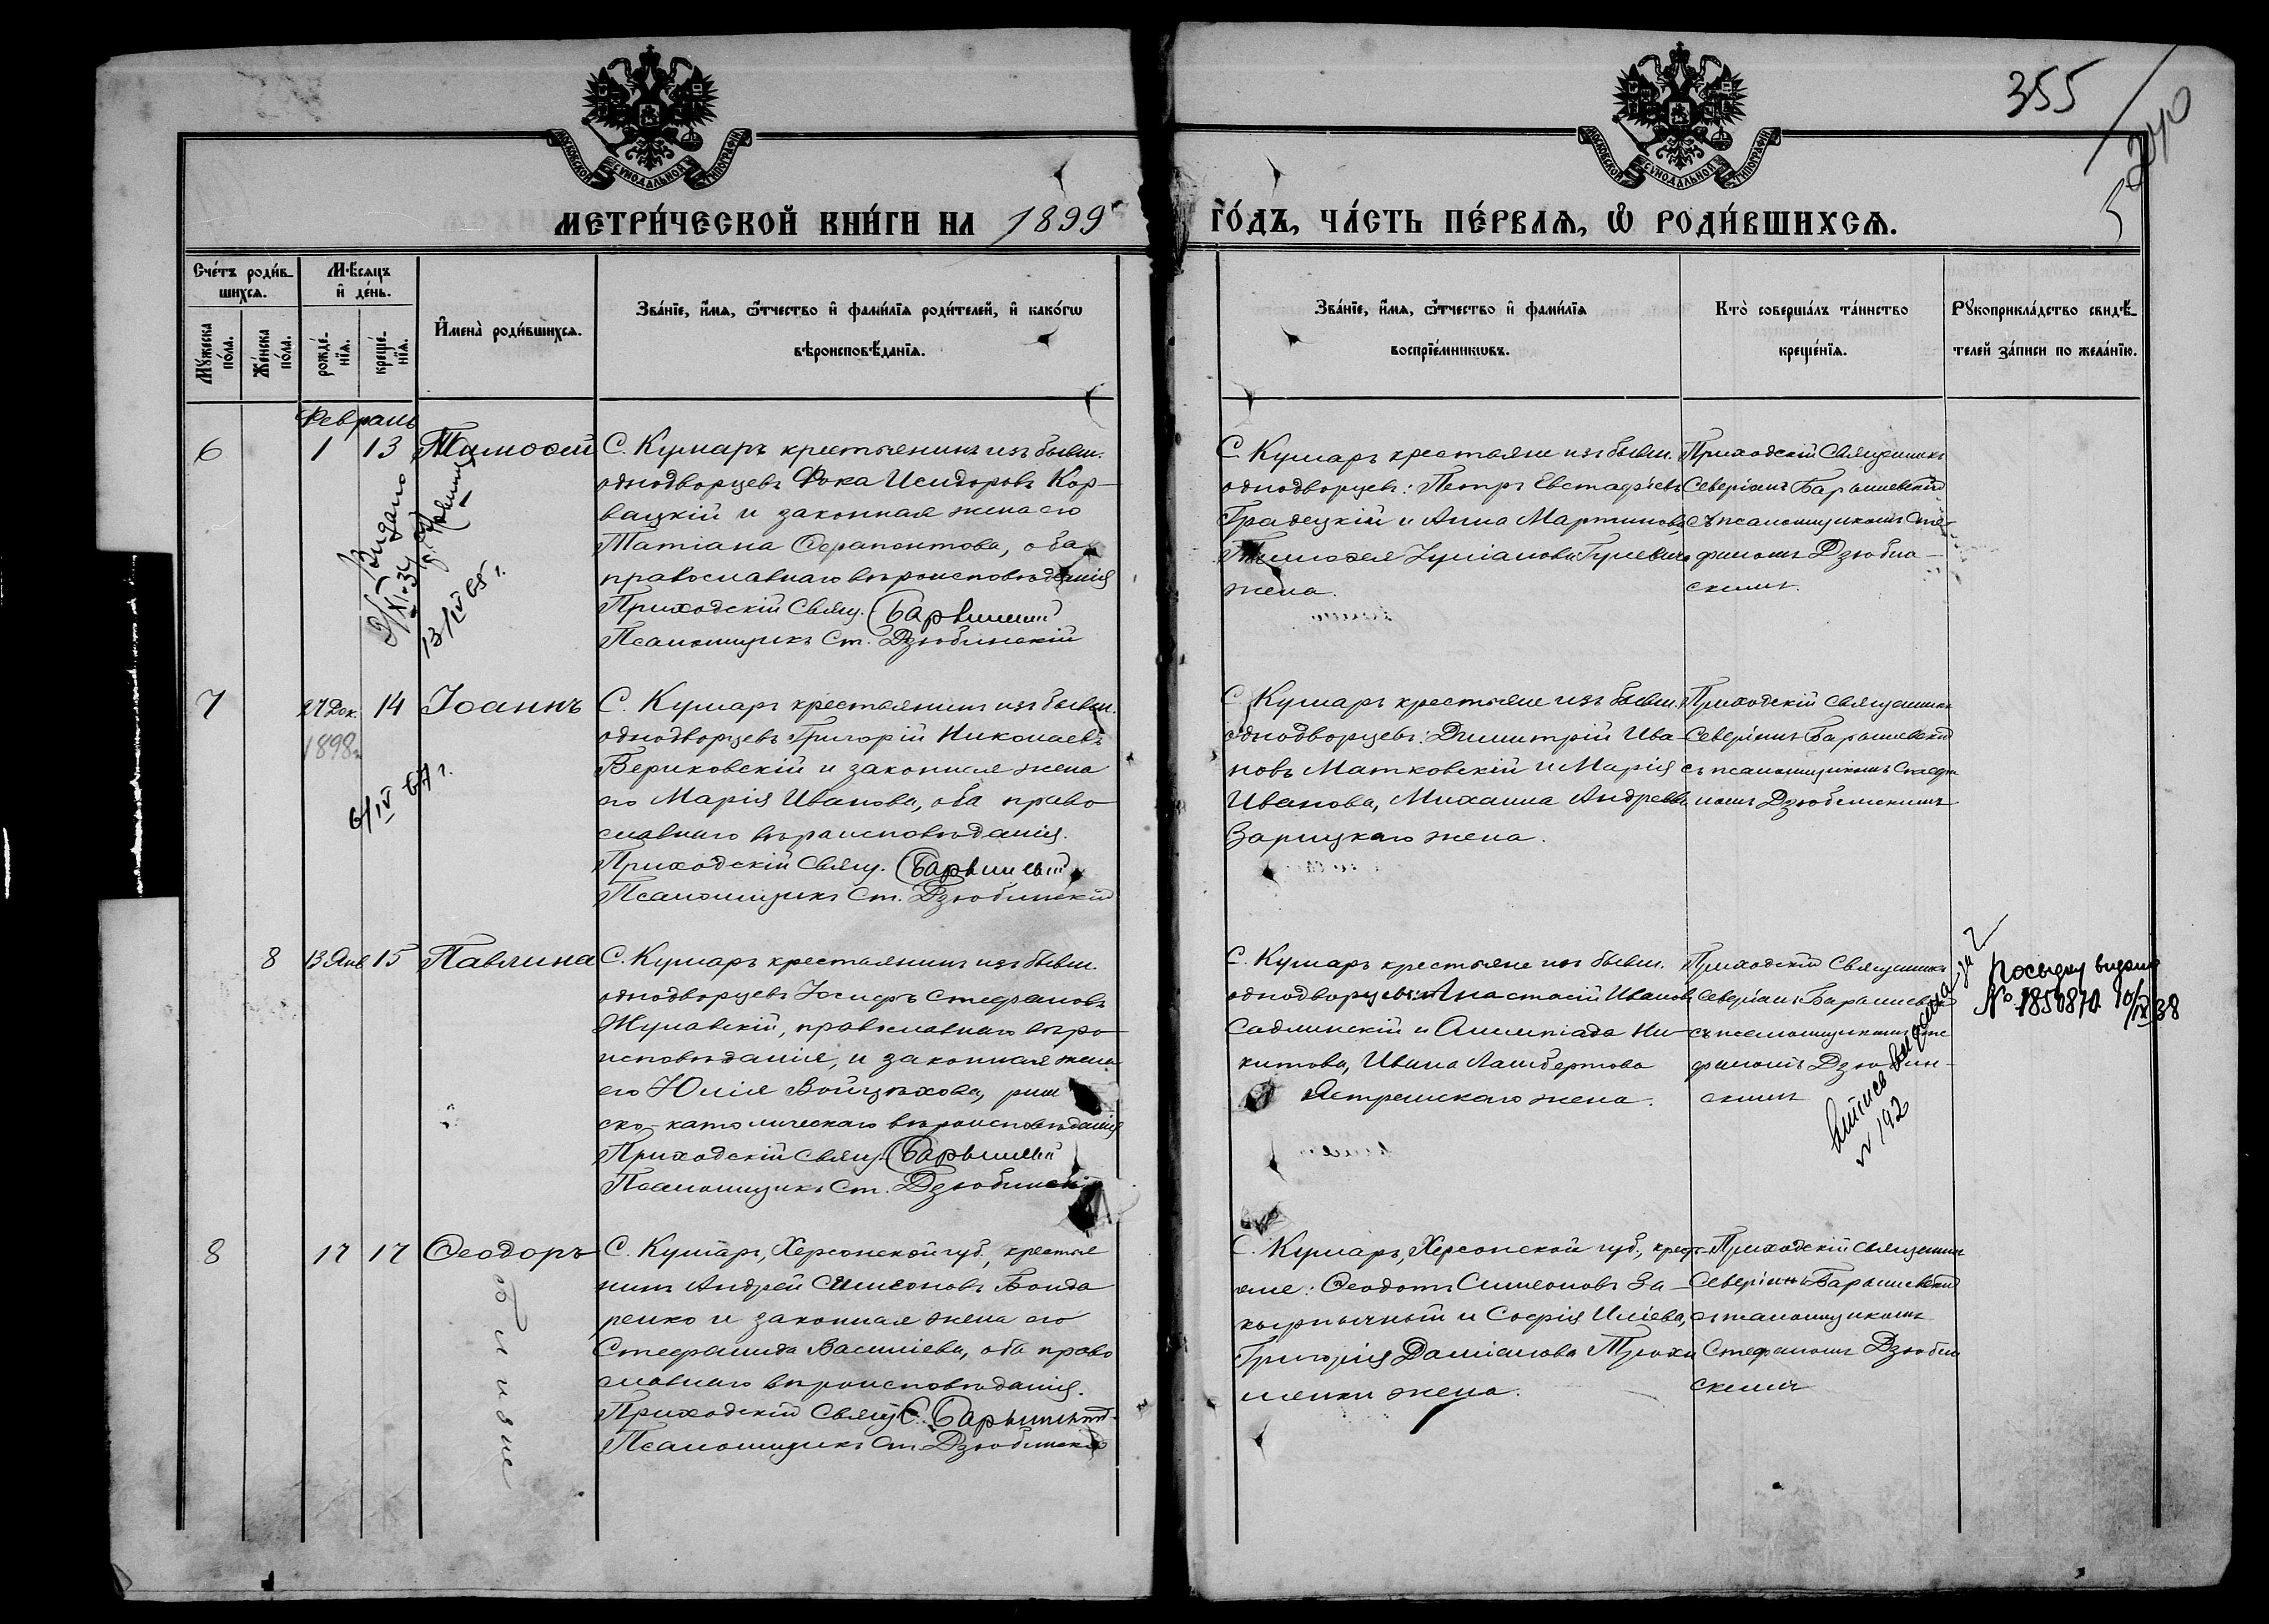 355
МОСКОВСКОЙ СѴНОДАЛЬНОЙ ТИПОГРАФІИ
МОСКОВСКОЙ СѴНОДАЛЬНОЙ ТИПОГРАФІИ
МЕТРИ́ЧЕСКОЙ КНИ́ГИ НА 1899
ГО́ДЪ, ЧА́СТЬ ПЕ́РВАѦ, Ѿ РОДИ́ВШИХСѦ.
Сче́тъ роди́в-
шихсѧ.
Мꙋ́жеска по́ла.
Же́нска по́ла.
Мѣ́сѧцъ
и҆ де́нь.
рожде́-
нїѧ.
креще́-
нїѧ.
И҆мена̀ роди́вшихсѧ.
Зва́нїе, и҆́мѧ, ѻ҆́тчество и҆ фами́лїѧ роди́телей, и҆ како́гѡ
вѣроисповѣ́данїѧ.
Зва́нїе, и҆́мѧ, ѻ҆́тчество и҆ фами́лїѧ
воспрїе́мникѡвъ.
Кто̀ соверша́лъ та́инство
креще́нїѧ.
Рꙋкоприкла́дство свидѣ́-
телей за́писи по жела́нїю.
Февраль
6 1 13 Тимофей
С. Кумаръ крестьянинъ изъ бывш.
однодворцевъ Фока Исидоровъ Кор-
вацкій и законная жена его
Татіана Ѳерапонтова, оба
православнаго вѣроисповѣданія
Приходскій Свящ.
Псаломщикъ Ст. Дзюбинскій
С. Кумаръ крестьяне изъ бывш.
однодворцевъ: Петръ Евстафіевъ
Градецкій и Анна Мартинова,
жена.
Приходскій Священникъ
Северіанъ Барышевскій
съ псаломщикомъ Сте-
фаномъ Дзюбин-
скимъ.
Видано
13/IV 65 г.
7 27 Дек. 14 Іоаннъ
1898 г.
6/IV 67 г.
С. Кумаръ крестьянинъ изъ бывш.
однодворцевъ Григорій Николаевъ
Вериковскій и законная жена
его Марія Иванова, оба право-
славнаго вѣроисповѣданія.
Приходскій Свящ.
Псаломщикъ Ст. Дзюбинскій
С. Кумаръ крестьяне изъ бывш.
однодворцевъ: Димитрій Ива-
новъ Матковскій и Марія
Иванова, Михаила Андреева
Зарицкаго жена.
Приходскій Священникъ
Северіанъ Барышевскій
съ псаломщикомъ Стефа-
номъ Дзюбинскимъ
8 13 Янв. 15 Павлина
С. Кумаръ крестьянинъ изъ бывш.
однодворцевъ Іосифъ Стефановъ
Жулавскій, православнаго вѣро-
исповѣданія, и законная жена
его Юлія Войцѣхова, рим
ско-католическаго вѣроисповѣданія
Приходскій Свящ.
Псаломщикъ Ст. Дзюбинскій
С. Кумаръ крестьяне изъ бывш.
однодворцевъ: Анастасій Ивановъ
Садлинскій и Олимпіада Ни-
китова, Ивана Ламбертова
Ястремскаго жена.
Приходскій Священникъ
Северіанъ Барышевскій
съ псаломщикомъ Сте
фаномъ Дзюбин-
скимъ
№ 192
№ 1850870 10/IX 38
8 17 17 Ѳеодоръ
С. Кумаръ, Херсонской губ., крестья
нинъ Андрей Симеоновъ Бонда
ренко и законная жена его
Стефанида Василіева, оба право
славнаго вѣроисповѣданія.
Приходскій Свящ.
Псаломщикъ Ст. Дзюбинскій
С. Кумаръ, Херсонской губ., кресть-
яне: Ѳеодотъ Симеоновъ За-
кырничный и Софія Иліева,
Григорія Даміанова
жена.
Приходскій Священникъ
Северіанъ Барышевскій
съ псаломщикомъ
Стефаномъ Дзюбин
скимъ